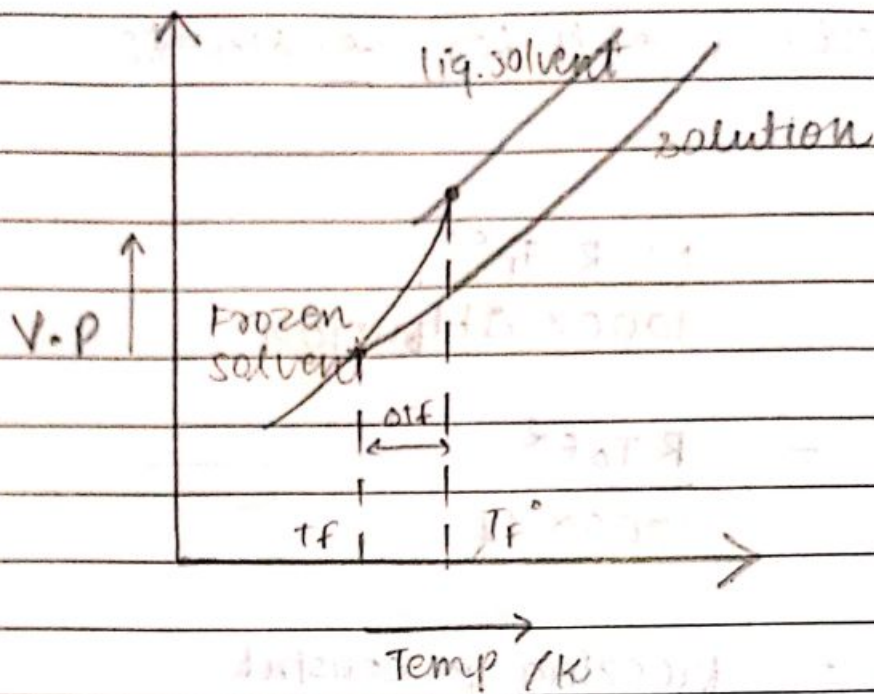 liq. solvent
solution
V.P
Frozen
solvent
ΔTf
Tf
TF°
Temp /K